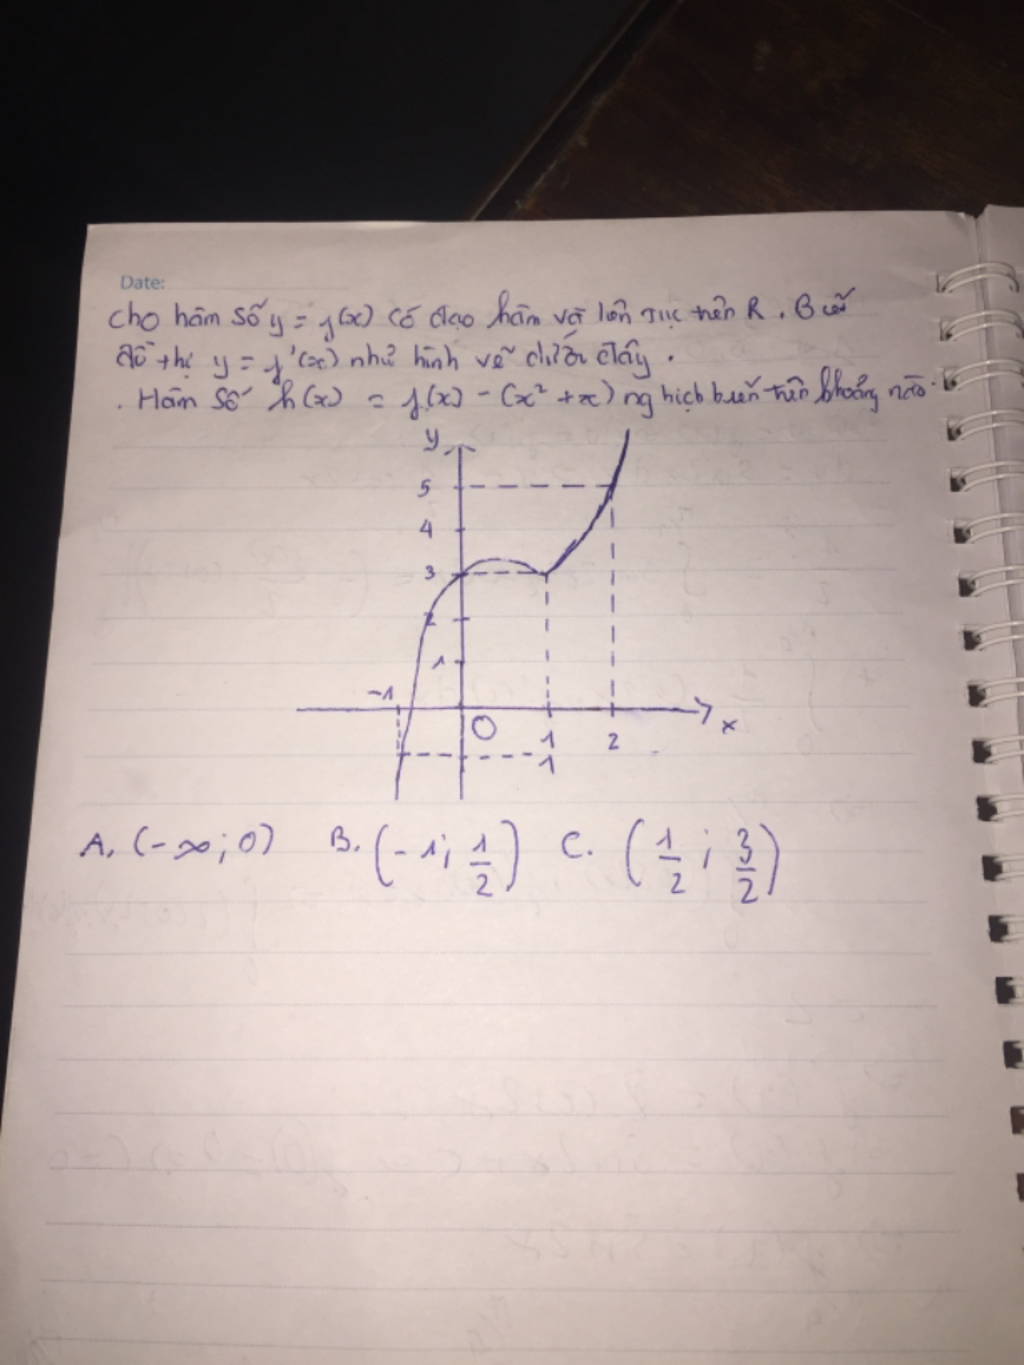 Date:
Cho hàm số y = f(x) có đạo hàm và liên tục trên R. Biết
đồ thị y = f'(x) như hình vẽ dưới đây.
. Hàm số h(x) = f(x) - (x² + x) nghịch biến trên khoảng nào
y
5
4
3
2
1
-1
O
1
2
x
1
A. (-∞; 0) B. (-1; 1/2) C. (1/2; 3/2)